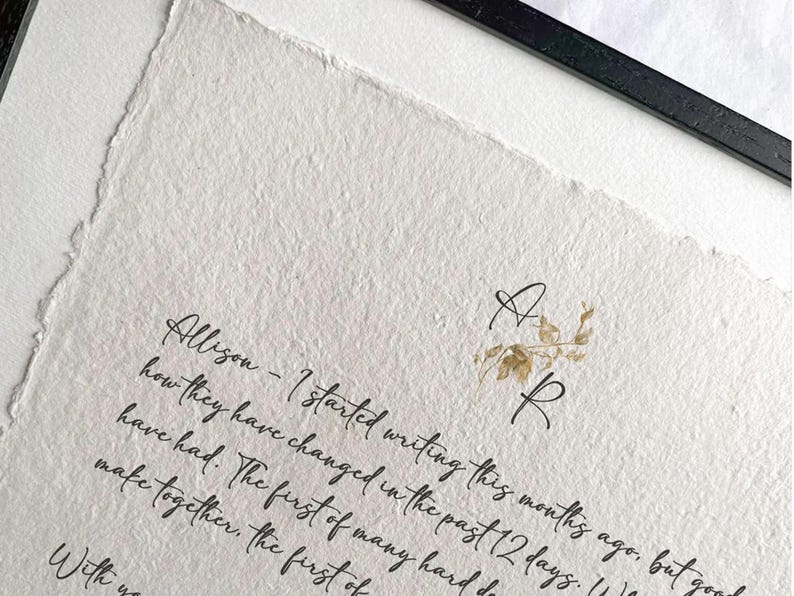 A
R
Allison - I started writing this months ago, but good
how they have changed in the past 12 days. 
have had. The first of many hard
make together, the first of
With